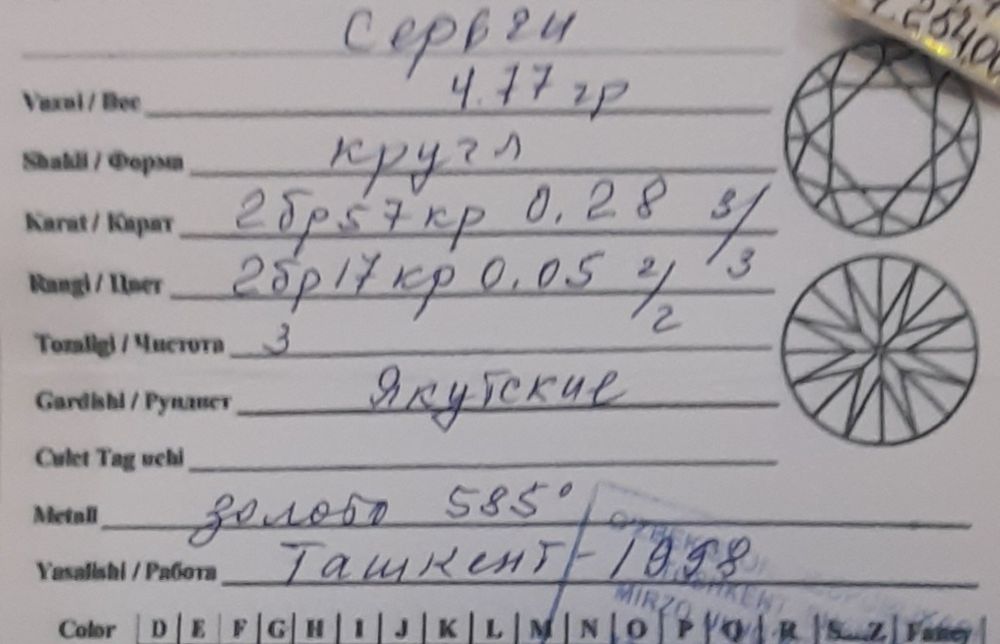 Серьги
Vazni / Вес 4.77 гр
Shakli / Форма кругл
Karat / Карат 2бр57кр 0.28 3/3
Rangi / Цвет 2бр17кр 0.05 2/2
Tozaligi / Чистота 3
Gardishi / Рундист Якутские
Culet Tag uchi
Metall золото 585°
Yasalishi / Работа Ташкент-1998
Color D E F G H I J K L M N O P Q R S...Z